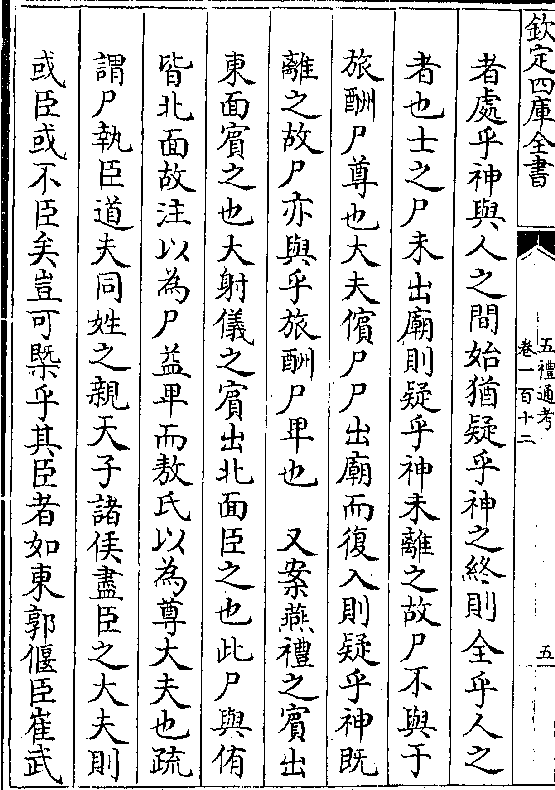 欽定四庫全書
五禮通考
卷一百十二
五
者處乎神與人之間始猶疑乎神之終則全乎人之
者也士之尸未出廟則疑乎神未離之故尸不與于
旅酬尸尊也大夫儐尸尸出廟而復入則疑乎神既
離之故尸亦與乎旅酬尸卑也　又案燕禮之賓出
東面賓之也大射儀之賓出北面臣之也此尸與侑
皆北面故注以為尸益卑而敖氏以為尊大夫也疏
謂尸執臣道夫同姓之親天子諸侯盡臣之大夫則
或臣或不臣矣豈可槩乎其臣者如東郭偃臣崔武